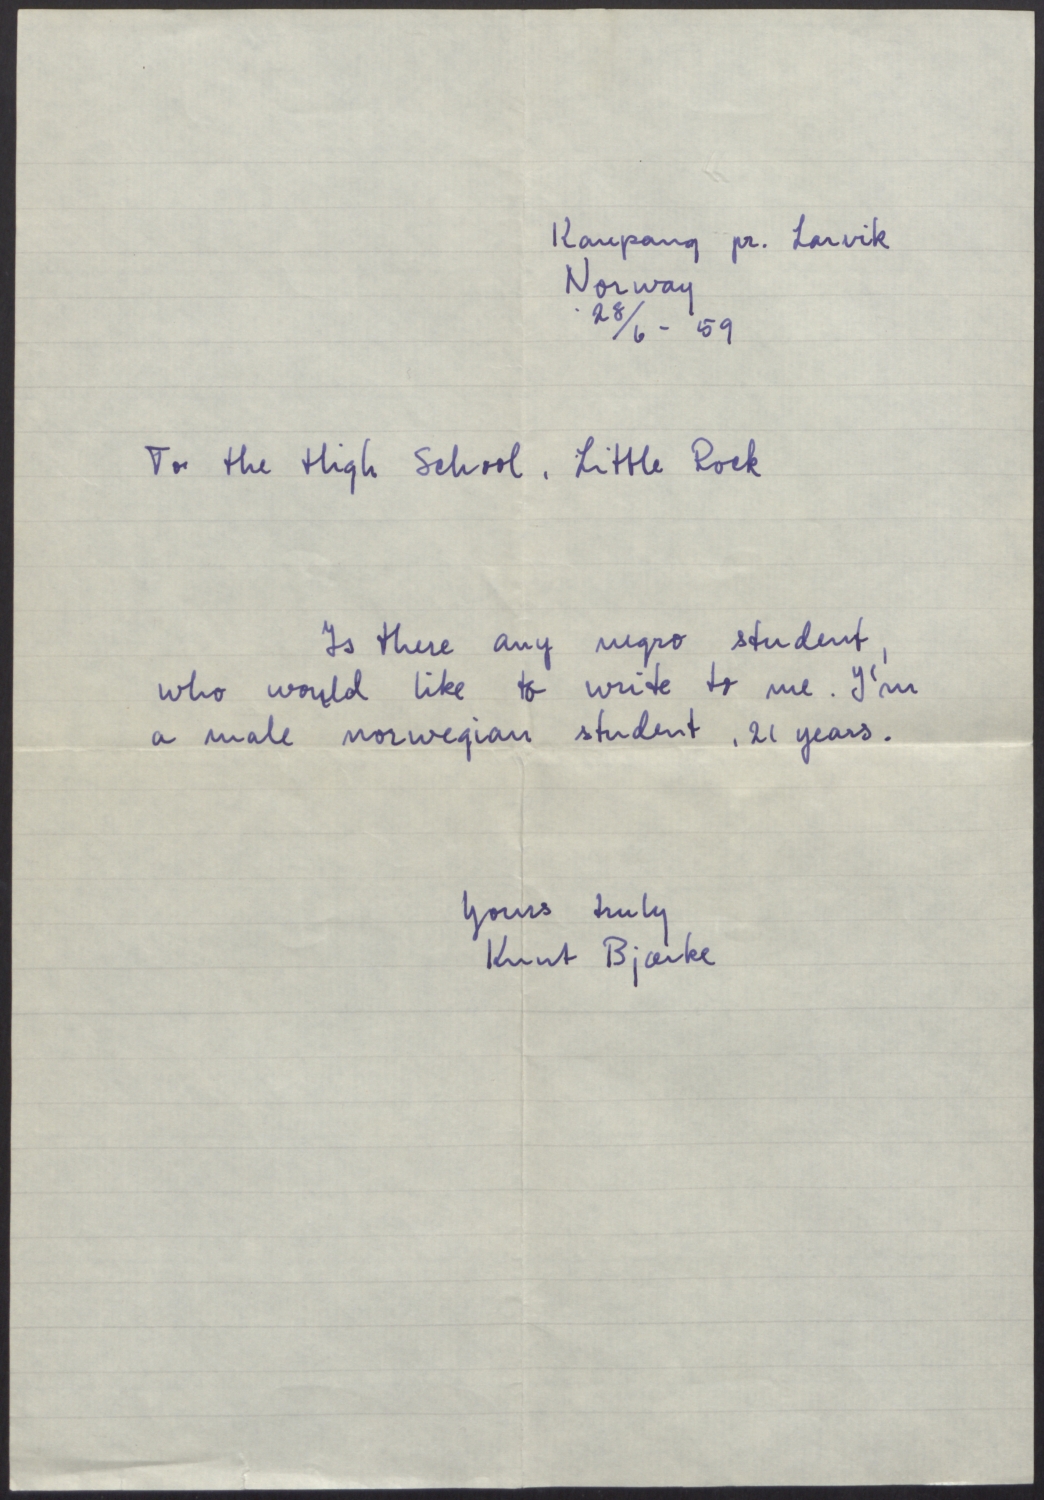 Kaupang pr. Larvik
Norway
28/6 - 59
To the High School, Little Rock
Is there any negro student,
who would like to write to me. I'm
a male norwegian student, 21 years.
Yours truly
Knut Bjærke